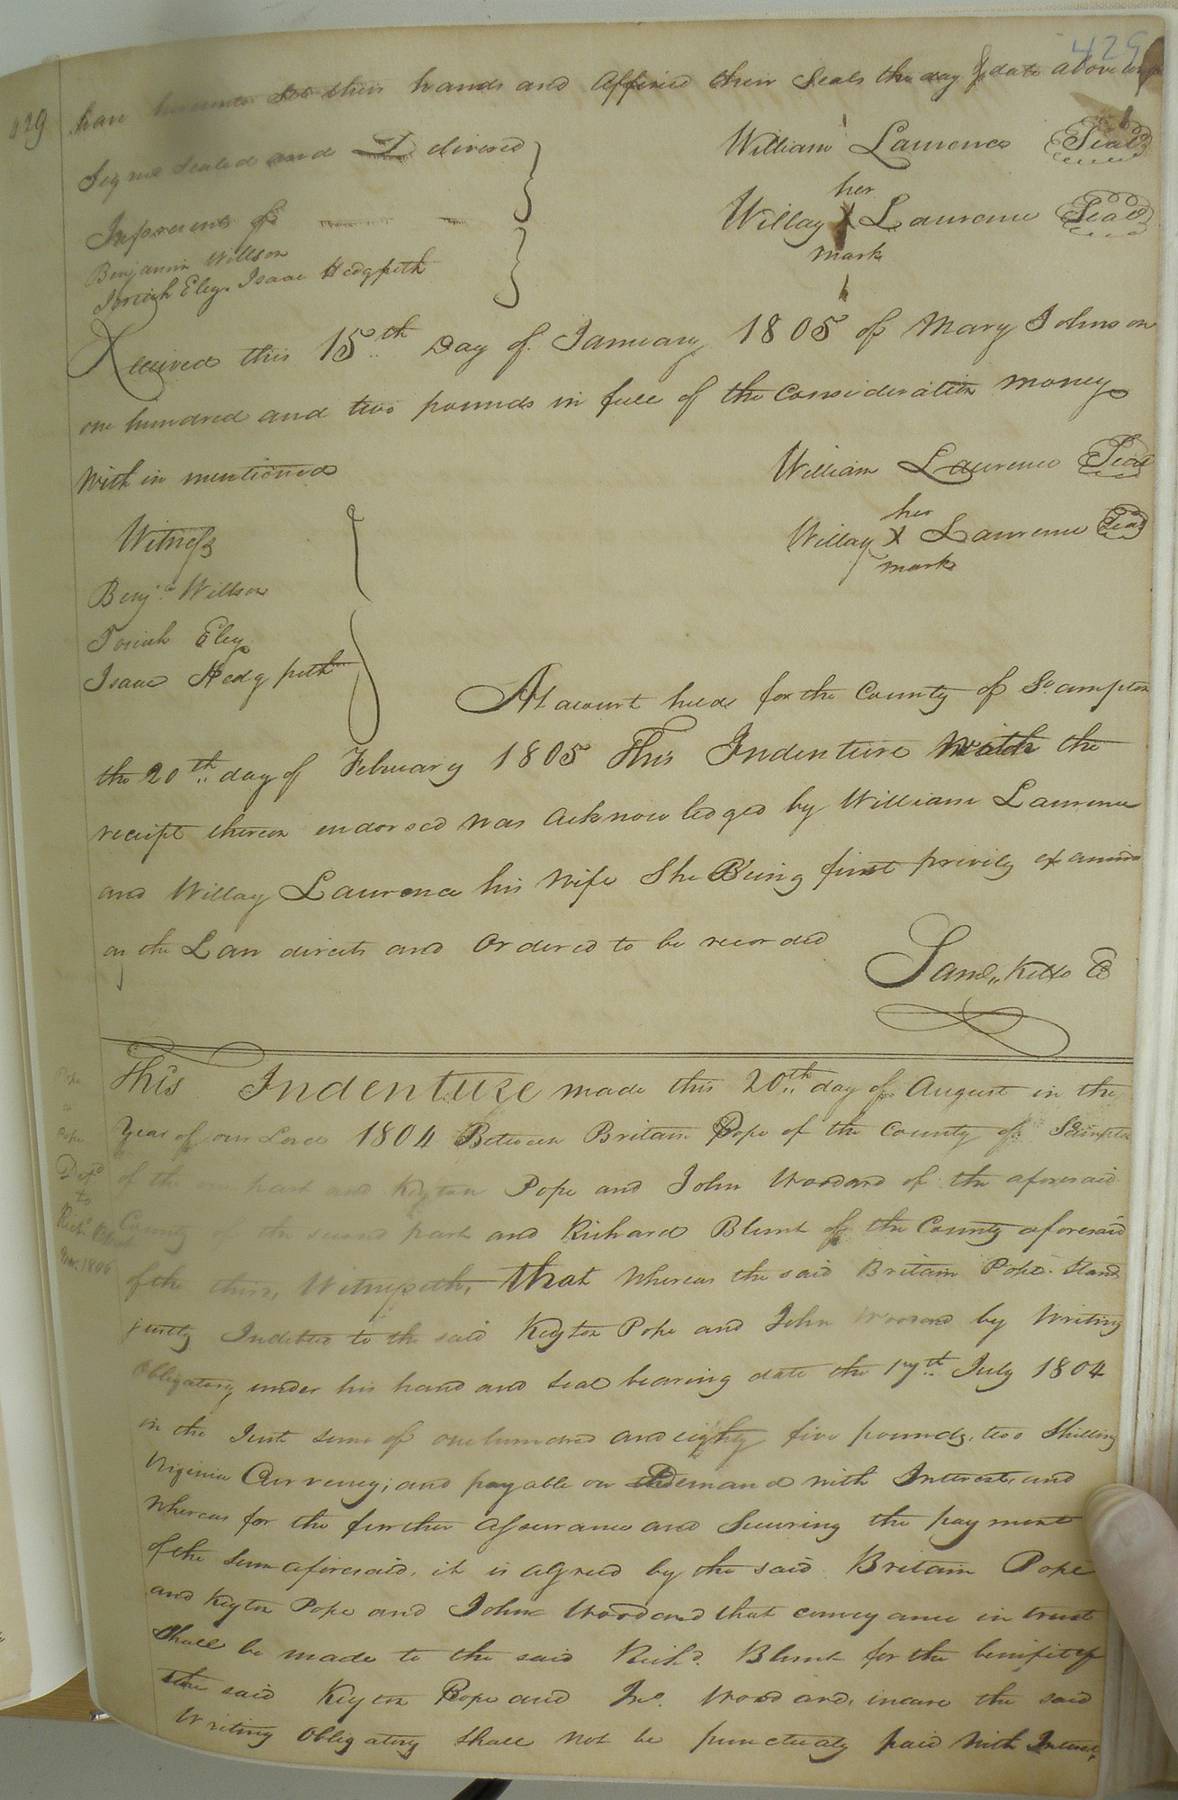 429
429
have hereunto Set their hands and affixed their Seals the day & date above
Signed Sealed and D delivered William Laurence Seal
her
Inpresents of Willay X Laurence Seal
mark
Benjamin Willson
Josiah Eley. Isaac Hedgpeth
Received this 15..th Day of January 1805 of Mary Johnson
one hundred and two pounds in full of the Consideration money
With in mentioned William Laurence Seal
her
Witness Willay X Laurence Seal
mark
Benj.n Willson
Josiah Eley
Isaac Hedgpeth
At acourt held for the County of So.ampton
the 20..th day of February 1805 This Indenture with the
receipt thereon endorsed was acknowledged by William Laurence
and Willay Laurence his Wife She Being first privily examind
as the Law directs and Ordered to be recorded
Saml,, Kello C
This Indenture made this 20..th day of August in the
Year of our Lord 1804 Between Britain Pope of the County of So.ampton
of the one part and Keyton Pope and John Woodard of the aforesaid
County of the second part and Richard Blunt of the County aforesaid
of the third, Witnesseth, that Whereas the said Britain Pope Stand
justly Indebted to the said Keyton Pope and John Woodard by Writing
Obligatory under his hand and seal bearing date the 17..th July 1804
in the Just sum of one hundred and eighty five pounds, two Shillings
Virginia Currency; and payable on Demand with Interest, and
Whereas for the further assurance and Securing the payment
of the Sum aforesaid, it is agreed by the said Britain Pope
and Keyton Pope and John Woodard that conveyance in trust
Shall be made to the said Richd. Blunt for the benifit of
the said Keyton Pope and Jno. Woodard, incase the said
Writing Obligatory Shall not be punctualy paid with Interest,
Pope
Pope
to
Richd.
1806